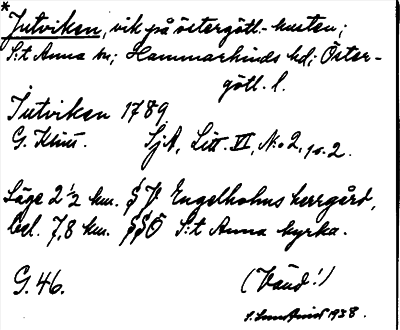 *
Jutviken, vik på östergötl.-kusten;
S:t Anna sn; Hammarkinds hd; Öster-
götl. l.
Jutviken 1789
G. Klint. SjA, Litt. VI, N:o 2, 10. 2.
Läge 2 1/2 km. § V Engelholms herrgård,
bel. 7,8 km. §§Ö S:t Anna kyrka.
G. 46. (Vänd!)
1938.